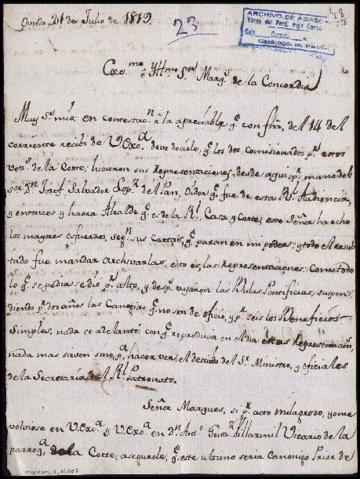 Oviedo 21 de Julio de 1819.
23
ARCHIVO DE ABASCAL
48
Exc.mo é Yttmo S.or Marq.s de la Concordia
Muy S.r mio: en contestac.n a la apreciable q.e con fha, del 14 del
corriente recibi de V.Exc.a devo decirle, q.e los dos Comisionados p.r estos
de la Corte, hicieron sus Representaciones, desde aquí p.r mano del
S.or D.n Josef Salvador Lop.z del Pan, Oidor q.e fue de esta R.l Audiencia,
y entonces y haora Alcalde q.e es de la R.l Casa, y Corte; este Señor ha echo
los mayores esfuerzos, seg.n sus Cartas q.e paran en mi poder, y todo el Resul-
tado fue mandar Archivarlas, esto es las Representaciones: Como todo
lo q.e se pedia se dio p.r alto, y desp.s vajaron las Bulas Pontificias, suspen-
diendo p.r dos años las Canogias q.e no son de oficio, y p.r seis los Beneficios
Simples, nada se adelantó con q.e reproducir en el dia estas Representacion.s
nada mas sirven sino p.a hacer ver el descuido del S.r Ministro, y oficiales
de la Secretaría del R.l Patronato.
Señor Marques, si p.r acto milagroso, yo me
volviese en V.Exc.a y V.Exc.a en D.n Ant.o Villarmil Vicario de la
parroq.a de la Corte, asegurole q.e este ultimo seria Canonigo Prior de